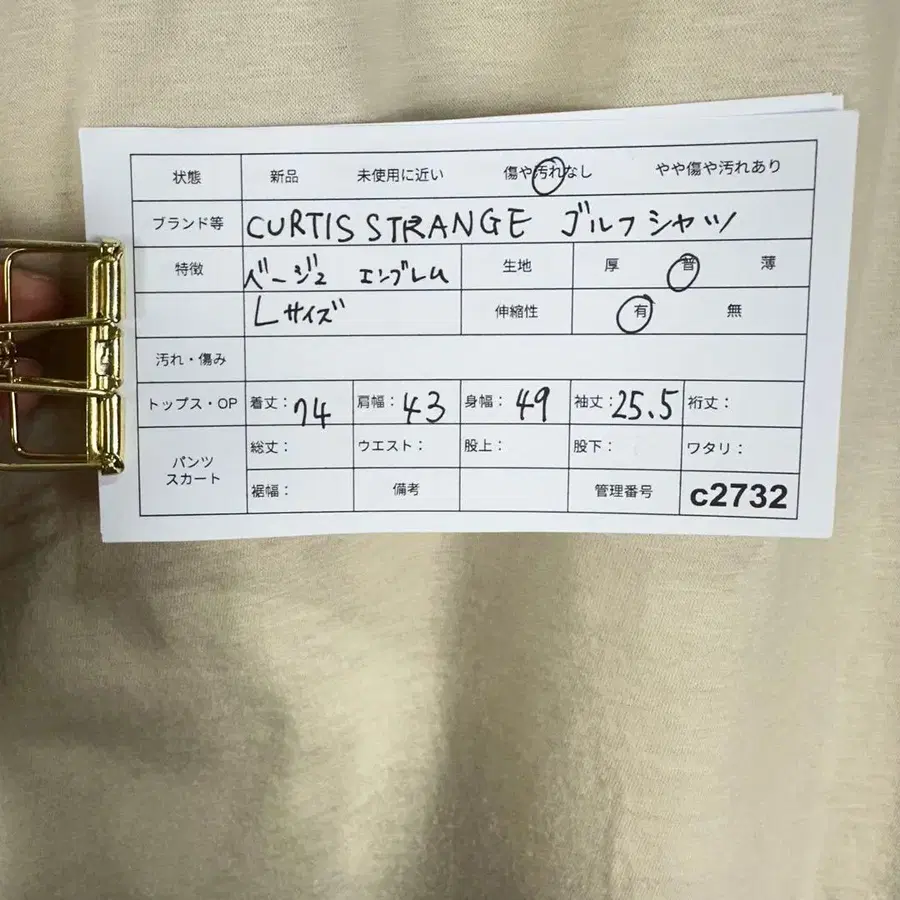 状態 新品 未使用に近い 傷や汚れなし やや傷や汚れあり
ブランド等 CURTIS STRANGE ゴルフシャツ
特徴 ベージュ エンブレム 生地 厚 普 薄
Lサイズ 伸縮性 有 無
汚れ・傷み
トップス・OP 着丈：74 肩幅：43 身幅：49 袖丈：25.5 裄丈：
パンツ スカート 総丈： ウエスト： 股上： 股下： ワタリ：
裾幅： 備考 管理番号 c2732